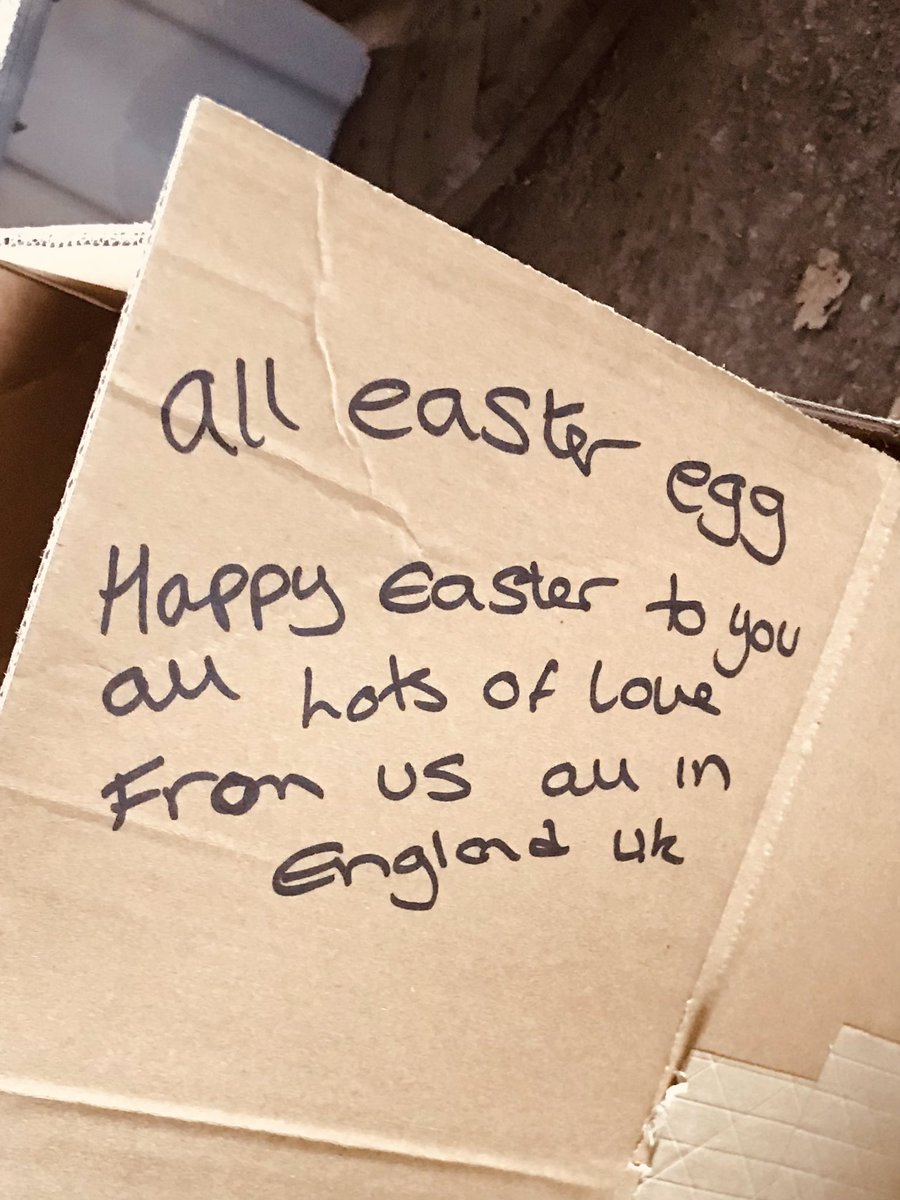 all easter egg
Happy Easter to you
all Lots of love
From us all in
England uk